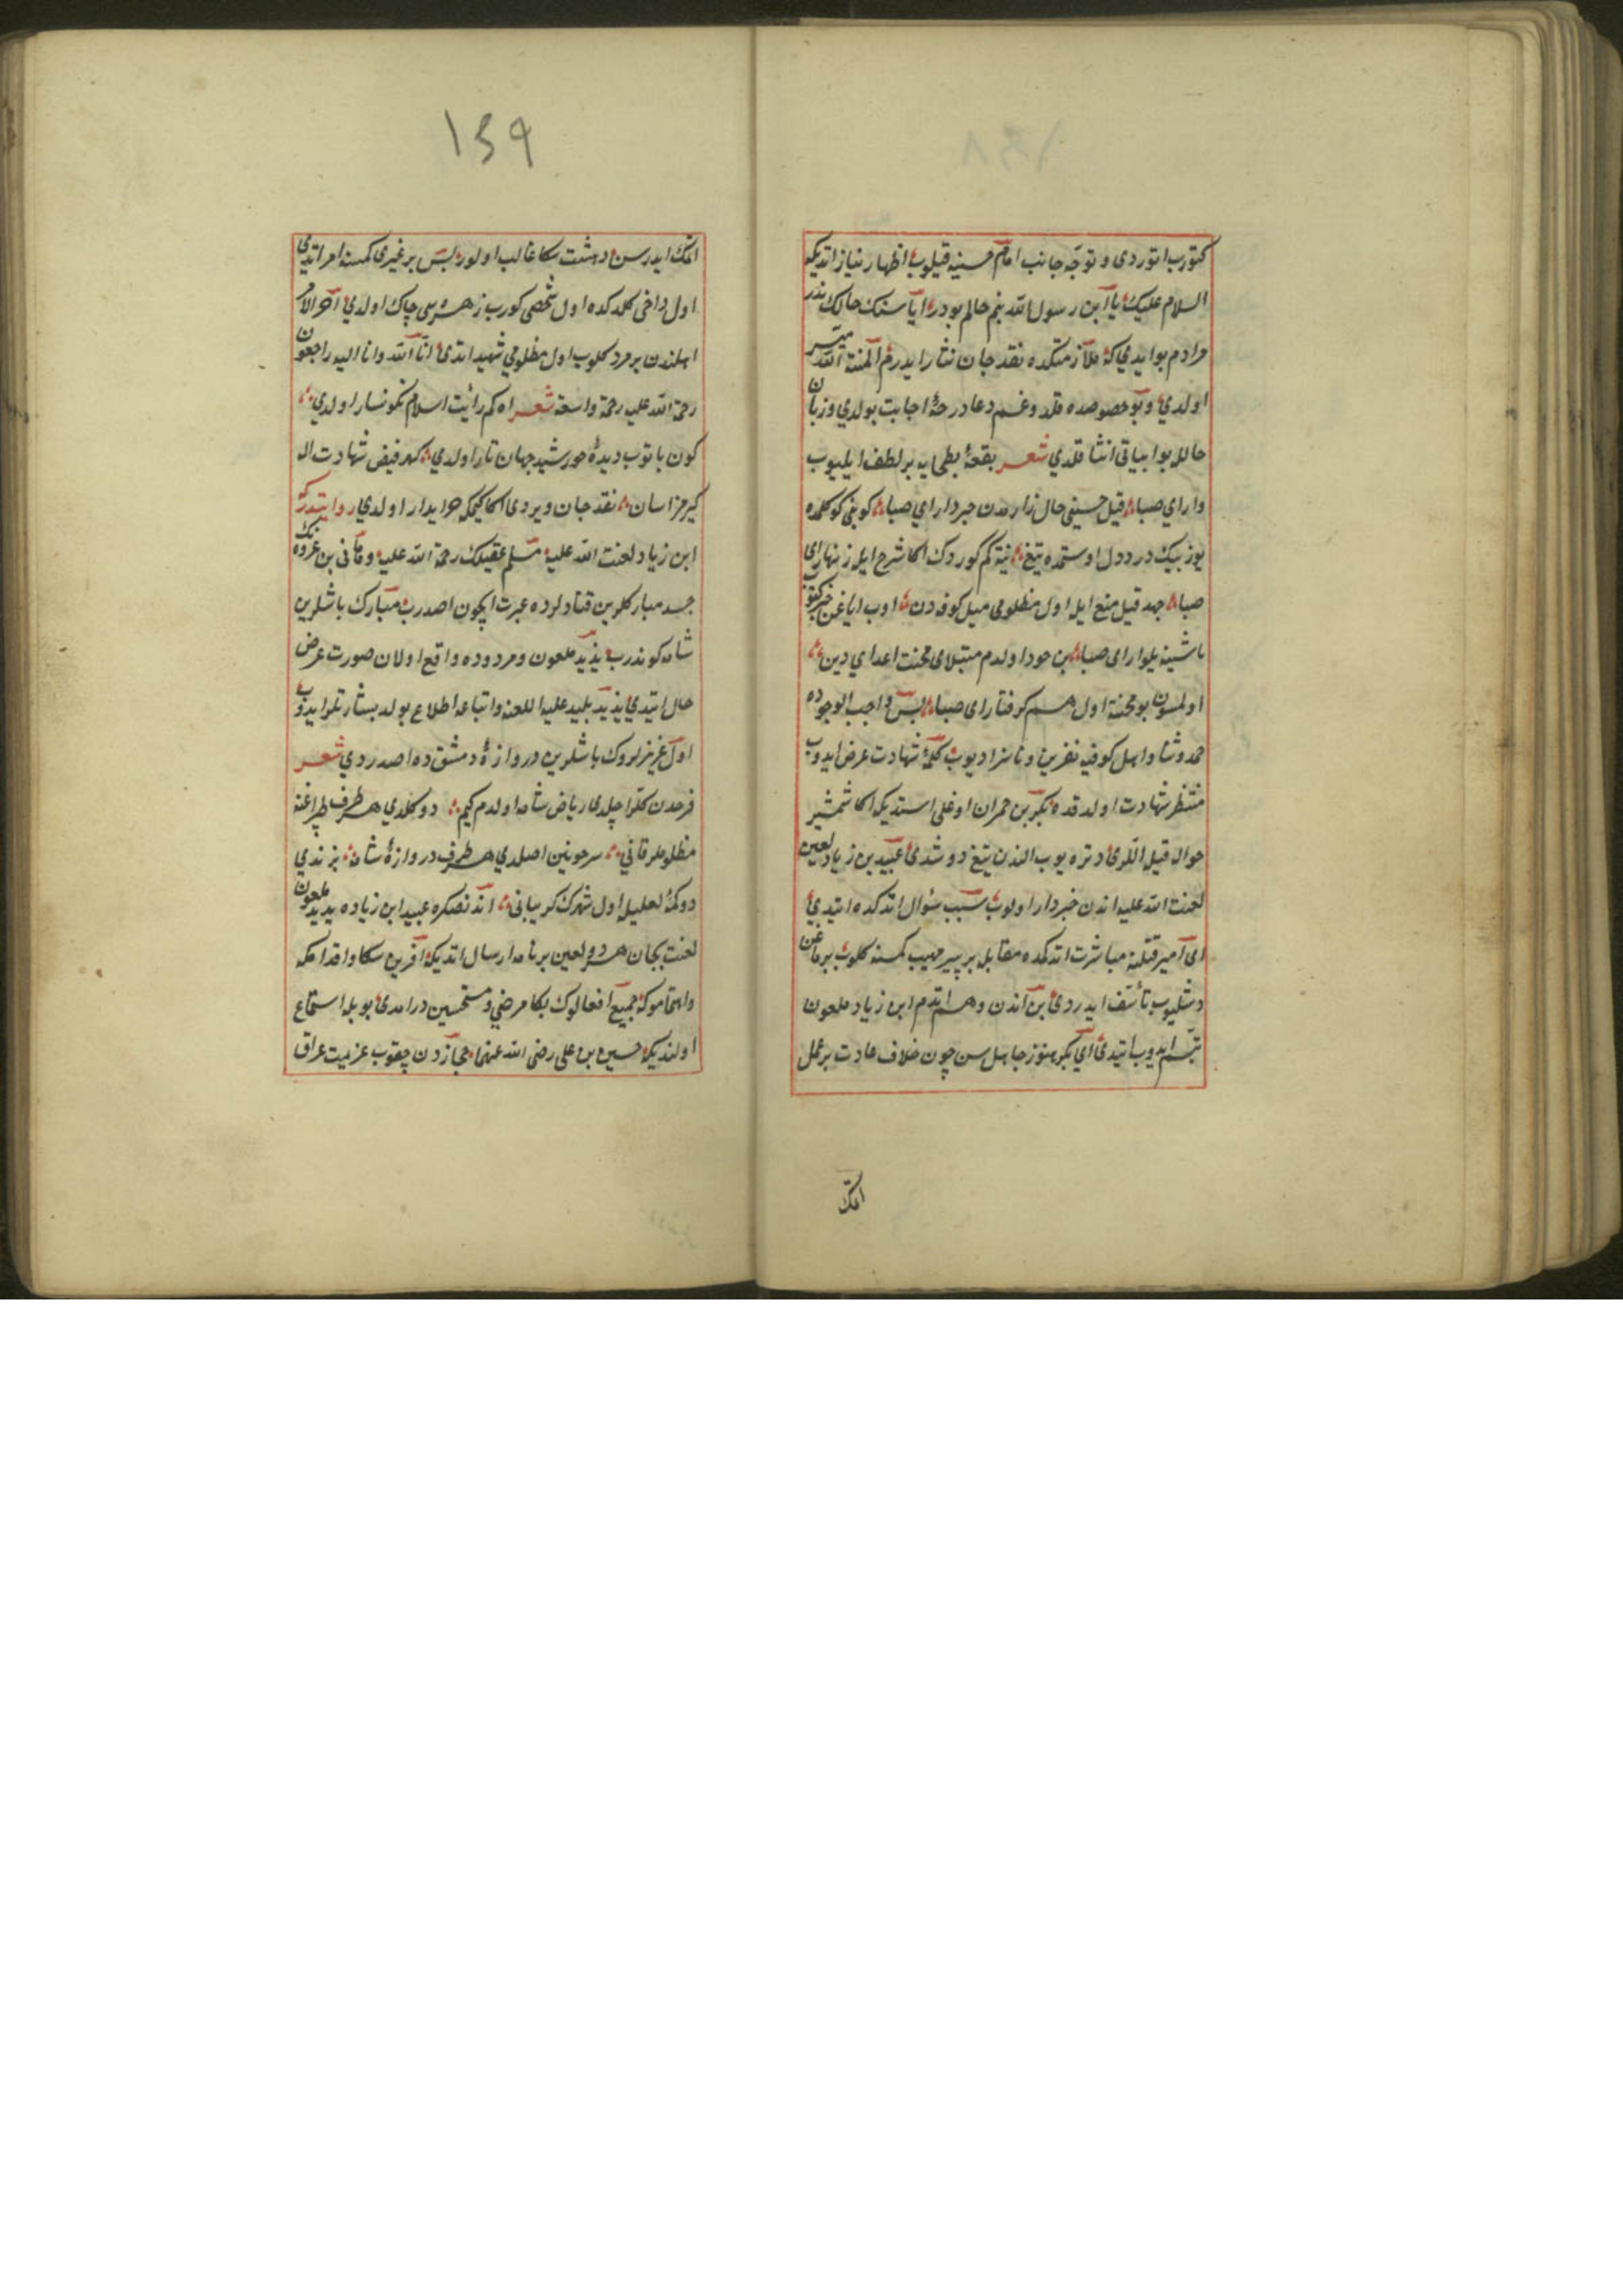 كتورب اتوردى و توجه جانب امام حسينه قيلوب اظهار نياز اتديكه
السلام عليك يا ابن رسول الله بنم حالم بودر ايا سنك حالك ندر
مرادم بو ايدي كه ملازمتكده نقد جان نثار ايدرم المنة الله ميسر
اولدي و بو خصوصده قلدوغم دعا درجۀ اجابت بولدي و زبان
حالله بو ابياتى انشا قلدي شعر بقعۀ بطحايه بر لطف ايليوب
وار اي صبا قيل حسينى حال زارمدن خبردار اي صبا كوفى كوكلمده
يوز بيك درد دل اوستمده تيغ نيته كم كوردك اكا شرح ايله زنهار اى
صبا جهد قيل منع ايله اول مظلومى ميل كوفه دن اوب اياغن
باشينه يلوار اى صبا بن خود اولدم مبتلاى محنت اعداي دين
اولمسون بو محنته اول هم كرفتار اى صبا پس واجب الوجوده
حمد و ثنا و اهل كوفيه نفرين و ناسزا ديوب كلمۀ شهادت عرض ايدوب
منتظر شهادت اولدقده بكر بن حمران اوغلى استديكه اكا شمشير
حواله قيله اللرى دتره يوب الندن تيغ دوشدى عبيد بن زياد لعين
لعنت الله عليه اندن خبردار اولوب سبب سؤال اتدكده ايتدي
اى امير قتلنه مباشرت اتدكمده مقابله بر پير مهيب كمسنه كلوب برماغن
دشليوب تأسف ايدردى بن اندن وهم اتدم ابن زياد ملعون
تبسم ايدوب ايتدى اى بكر هنوز جاهل سن چون خلاف عادت بر عمل
اتمك
١٣٩
اتمك ايدرسن دهشت سكا غالب اولور پس بر غيرى كمسنه امر اتدى
اول داخى كلدكده اول شخصى كورب زهرسى چاك اولدي آخر الامر
اهلندن بر مرد كلوب اول مظلومي شهيد اتدى انا لله وانا اليه راجعون
رحمة الله عليه رحمة واسعة شعر اه كم رأيت اسلام نكونسار اولدي
كون باتوب ديدۀ خورشيد جهان تار اولدي كهر فيض شهادت اله
كيرمز اسان نقد جان ويردى اكا كيمكه خريدار اولدي روايتدركه
ابن زياد لعنت الله عليه مسلم عقيلك رحمة الله عليه و هانى بن عروه نك
جسد مباركلرين قناد لرده عبرت ايچون اصدرب مبارك باشلرين
شامه كوندرب يزيد ملعون و مردوده واقع اولان صورت عرض
حال ايتدي يزيد پليد عليه اللعنه و اتباعه اطلاع بولد بشارتلر ايدوب
اول عزيزلروك باشلرين دروازۀ دمشق ده اصدردي شعر
فرحدن كللر اچلدى رياض شامه اولدم كيم دوكلدي هر طرف طپراغنه
مظلوملر قاني سر خونين اصلدي هر طرف دروازۀ شامه بزندي
دوكمۀ لعليله اول شهرك كريبانى اندنصكره عبيد ابن زياده يزيد ملعون
لعنت بجان هر دو لعين بر نامه ارسال اتديكه افرين سكا و اقدامكه
و اهتماموكه جميع افعالوك بكا مرضي و مستحسندر امدى بويله استماع
اولنديكه حسين بن على رضى الله عنهما حجازدن چقوب عزيمت عراق